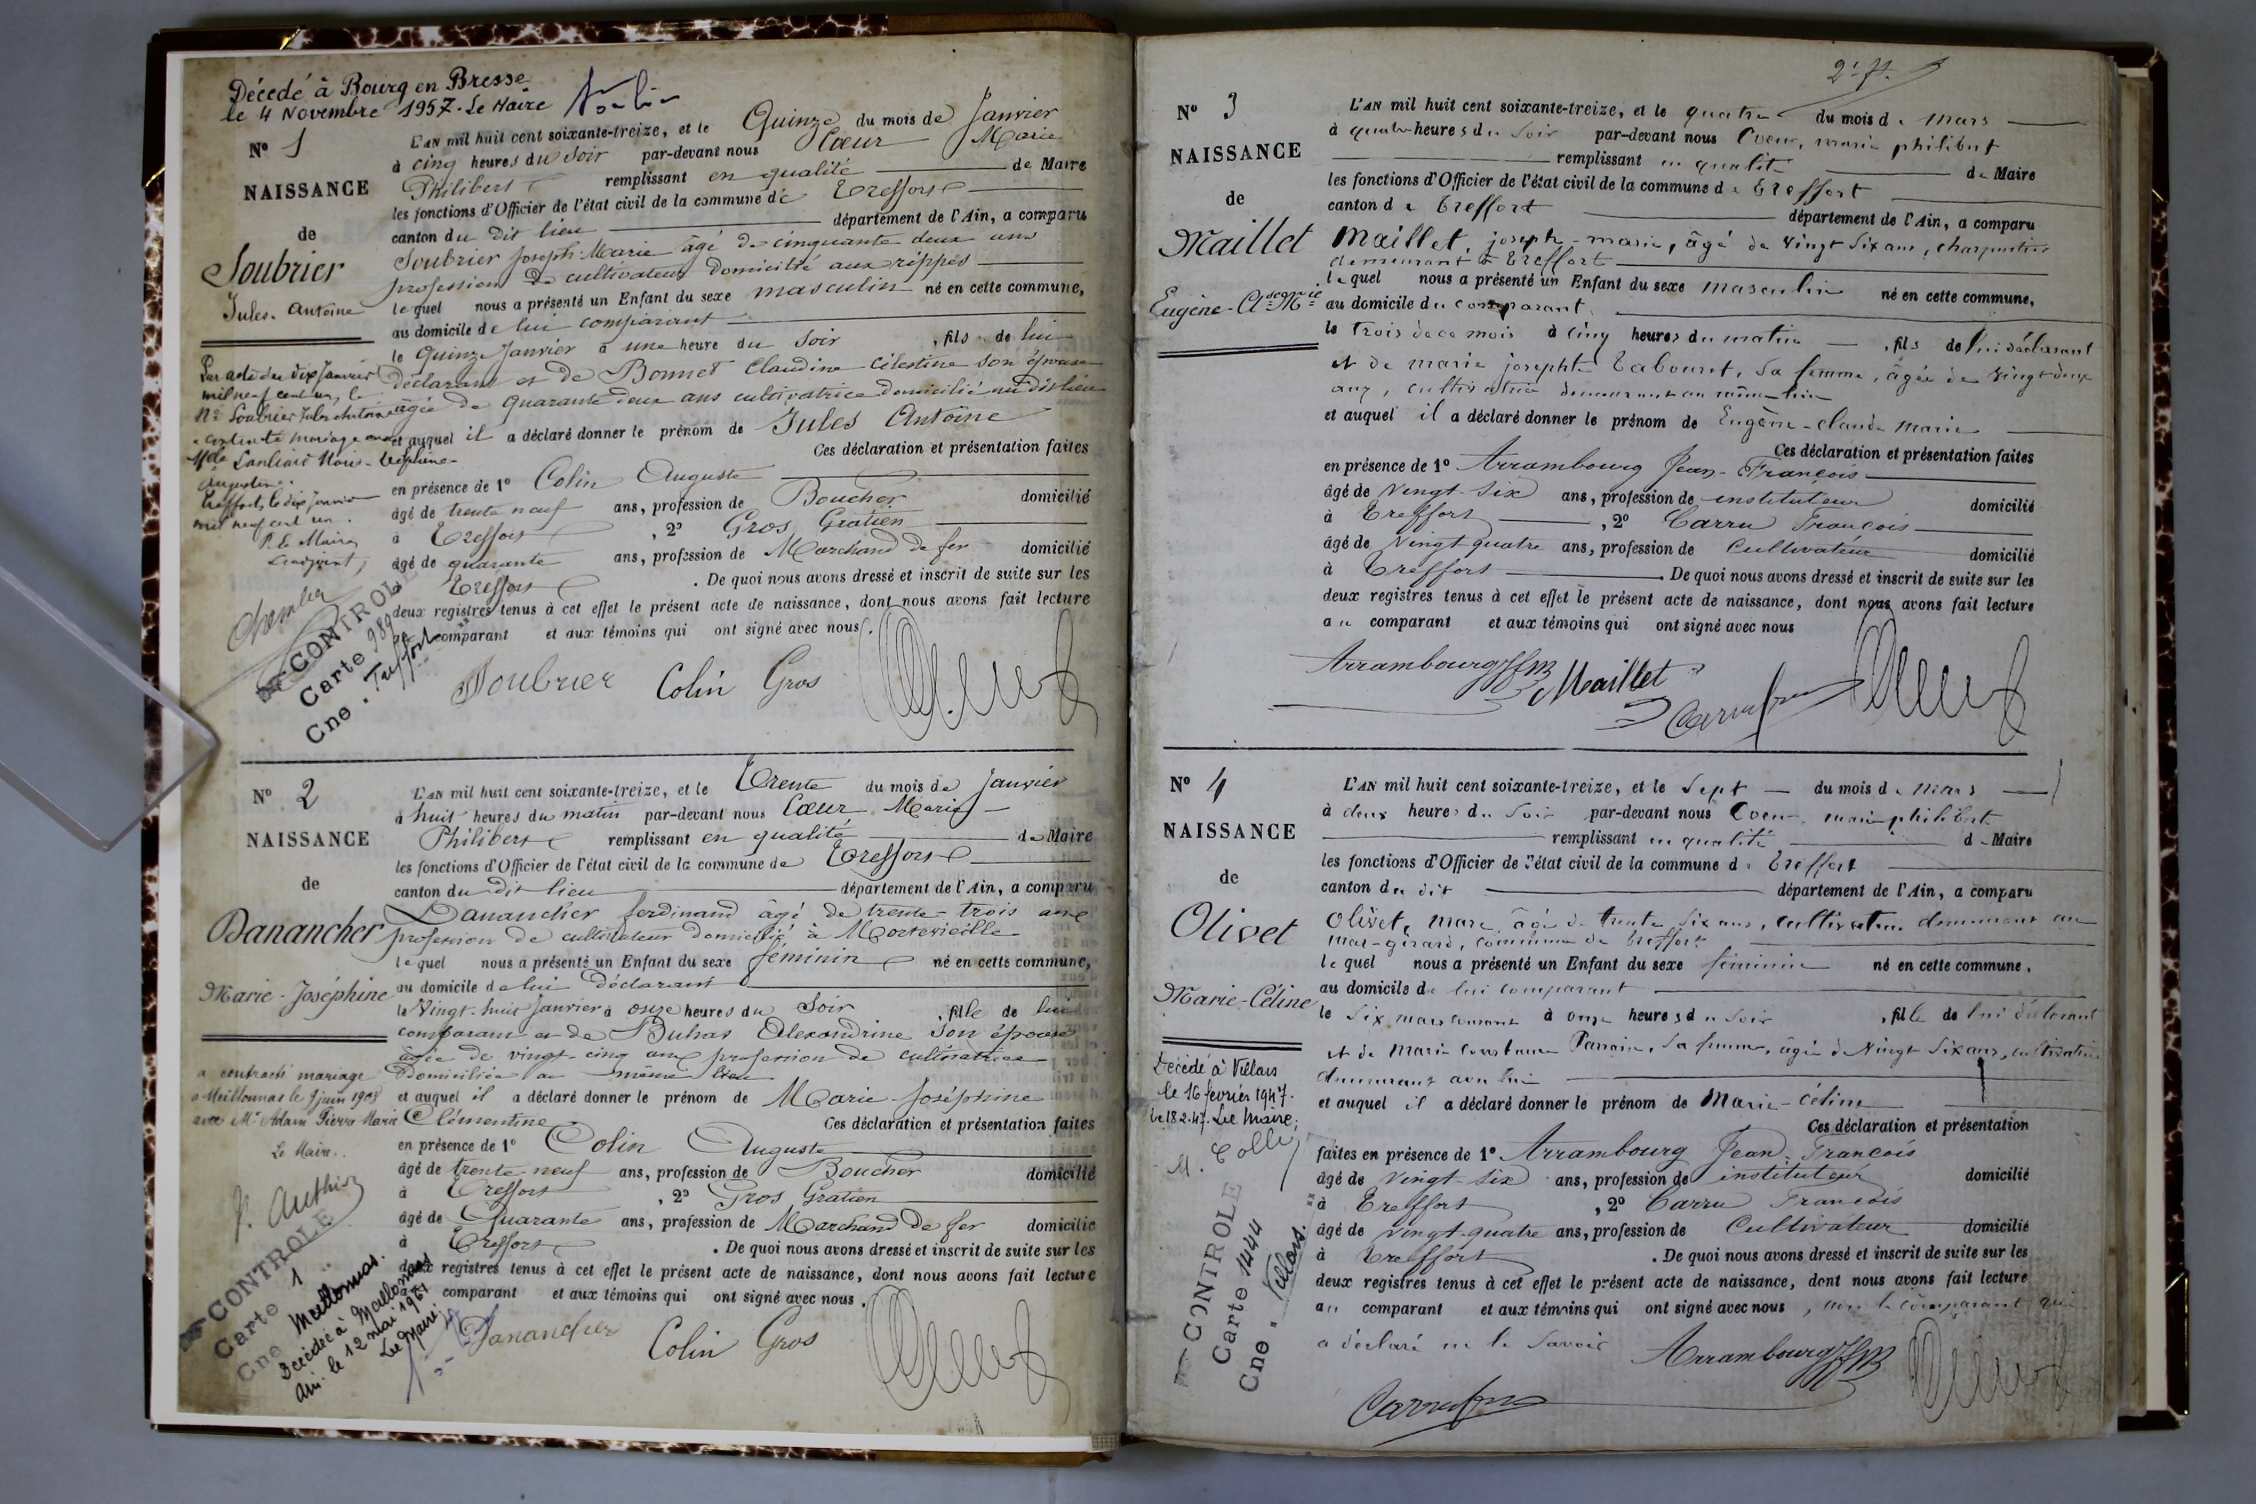 Décédé à Bourg en Bresse
le 4 Novembre 1957. Le Maire
N° 1
NAISSANCE
de
Soubrier
Jules. Antoine
L'AN mil huit cent soixante-treize, et le Quinze du mois de Janvier
à cinq heures du soir par-devant nous Cœur Marie
Philibert remplissant en qualité de Maire
les fonctions d'Officier de l'état civil de la commune de Treffort
canton du dit lieu département de l'Ain, a comparu
Soubrier Joseph-Marie âgé de cinquante deux ans
profession de cultivateur domicilié aux rippes
lequel nous a présenté un Enfant du sexe masculin né en cette commune,
au domicile de lui comparant
le Quinze Janvier à une heure du soir, fils de lui
déclarant et de Bonnet Claudine Célestine son épouse
âgée de quarante deux ans cultivatrice domicilié au dit lieu
et auquel il a déclaré donner le prénom de Jules Antoine
Ces déclaration et présentation faites
en présence de 1° Colin Auguste
âgé de trente neuf ans, profession de Boucher domicilié
à Treffort, 2° Gros Gratien
âgé de quarante ans, profession de Marchand de fer domicilié
Treffort. De quoi nous avons dressé et inscrit de suite sur les
deux registres tenus à cet effet le présent acte de naissance, dont nous avons fait lecture
comparant et aux témoins qui ont signé avec nous.
Soubrier Colin Gros
Par acte du dix Janvier
mil neuf cent un, le
Né Soubrier Jules Antoine
a contracté mariage avec
Treffort, le dix Janvier
mil neuf cent un.
P. le Maire
L'adjoint,
CONTROLE
Carte 989
Cne. Treffort
N° 2
NAISSANCE
de
Danancher
Marie-Joséphine
L'AN mil huit cent soixante-treize, et le Trente du mois de Janvier
à huit heures du matin par-devant nous Cœur Marie
Philibert remplissant en qualité de Maire
les fonctions d'Officier de l'état civil de la commune de Treffort
canton du dit lieu département de l'Ain, a comparu
Danancher ferdinand âgé de trente-trois ans
profession de cultivateur domicilié à Montevieille
lequel nous a présenté un Enfant du sexe féminin né en cette commune,
au domicile de lui déclarant
le Vingt-huit Janvier à onze heures du soir, fille de lui
comparant et de Buhas Alexandrine son épouse
âgée de vingt-cinq ans profession de cultivatrice
domiciliée au même lieu
et auquel il a déclaré donner le prénom de Marie-Joséphine
Clémentine Ces déclaration et présentation faites
en présence de 1° Colin Auguste
âgé de trente neuf ans, profession de Boucher domicilié
à Treffort, 2° Gros Gratien
âgé de Quarante ans, profession de Marchand de fer domicilié
à Treffort. De quoi nous avons dressé et inscrit de suite sur les
deux registres tenus à cet effet le présent acte de naissance, dont nous avons fait lecture
comparant et aux témoins qui ont signé avec nous.
Danancher Colin Gros
a contracté mariage
à Meillonnas le 9 juin 1903
avec Mr Adam Pierre Marie
Le Maire.
CONTROLE
Carte 1
Cne Meillonnas.
Décédée à Meillonnas
Ain. le 12 mai 1961
Le Maire
N° 3
NAISSANCE
de
Maillet
Eugène-Cl.de M.ie
L'AN mil huit cent soixante-treize, et le quatre du mois de mars
à quatre heures du soir par-devant nous Coeur, marie philibert
remplissant en qualité de Maire
les fonctions d'Officier de l'état civil de la commune de Treffort
canton de treffort département de l'Ain, a comparu
Maillet, joseph-marie, âgé de vingt six ans, charpentier
demeurant à Treffort
lequel nous a présenté un Enfant du sexe masculin né en cette commune,
au domicile du comparant.
le trois de ce mois à cinq heures du matin, fils de lui déclarant
et de marie josephte Tabouret, sa femme, âgée de vingt deux
ans, cultivatrice demeurant au même lieu
et auquel il a déclaré donner le prénom de Eugène-claude marie
Ces déclaration et présentation faites
en présence de 1° Arrambourg Jean-François
âgé de Vingt-six ans, profession de instituteur domicilié
à Treffort, 2° Carru François
âgé de Vingt quatre ans, profession de Cultivateur domicilié
à Treffort. De quoi nous avons dressé et inscrit de suite sur les
deux registres tenus à cet effet le présent acte de naissance, dont nous avons fait lecture
au comparant et aux témoins qui ont signé avec nous
Arrambourg Maillet
N° 4
NAISSANCE
de
Olivet
Marie-Céline
L'AN mil huit cent soixante-treize, et le Sept du mois de Mars
à deux heures du Soir par-devant nous Coeur, marie philibert
remplissant en qualité de Maire
les fonctions d'Officier de l'état civil de la commune de Treffort
canton du dit département de l'Ain, a comparu
Olivet, marc, âgé de trente six ans, cultivateur demeurant au
mas-girard, commune de treffort
lequel nous a présenté un Enfant du sexe féminin né en cette commune.
au domicile de lui comparant
le Six mars courant à onze heures du Soir, fille de lui déclarant
et de Marie Constance Parrain, sa femme, âgée de Vingt Six ans, cultivatrice
demeurant avec lui
et auquel il a déclaré donner le prénom de Marie-Céline
Ces déclaration et présentation
faites en présence de 1° Arrambourg Jean-François
âgé de vingt-six ans, profession de instituteur domicilié
à Treffort, 2° Carru François
âgé de vingt-quatre ans, profession de Cultivateur domicilié
à Treffort. De quoi nous avons dressé et inscrit de suite sur les
deux registres tenus à cet effet le présent acte de naissance, dont nous avons fait lecture
au comparant et aux témoins qui ont signé avec nous, non le comparant qui
a déclaré ne le Savoir Arrambourg
Décédé à Villars
le 16 février 1947.
le 18.2.47. Le Maire,
CONTROLE
Carte 1444
Cne. Villars.